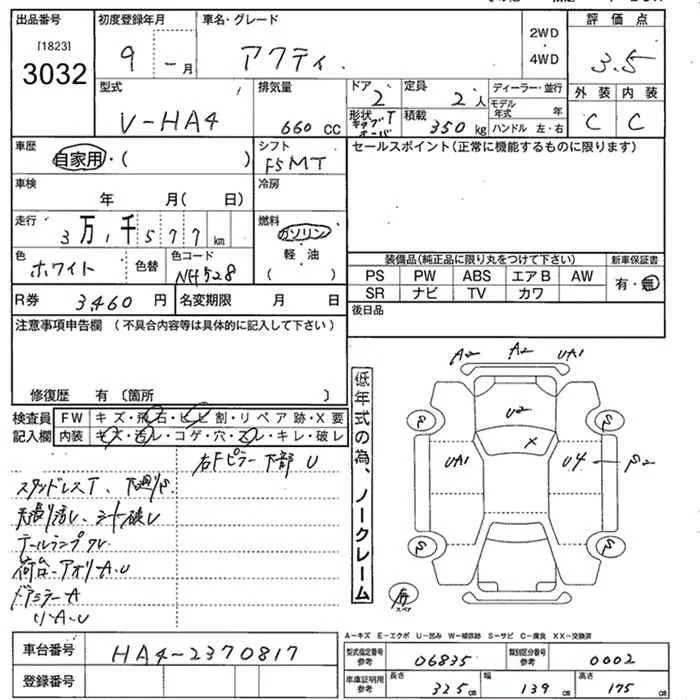 出品番号 初度登録年月 車名・グレード 2WD 評価点
[1823]
3032 9 -月 アクティ 4WD 3.5
型式 排気量 ドア 定員 ディーラー・並行 外装 内装
V-HA4 660 cc 2 2人 モデル年式 年 C C
形状 T 積載 350 kg ハンドル 左・右
車歴 自家用・( ) シフト F5MT セールスポイント(正常に機能するものに限ります)
車検 年 月( 日) 冷房
走行 3万1千577km 燃料 ガソリン
軽・油
( )
色 ホワイト 色替 色コード NH528
装備品(純正品に限り丸をつけて下さい) 新車保証書
PS PW ABS エアB AW 有・無
SR ナビ TV カワ
R券 3,460円 名変期限 月 日 後日品
注意事項申告欄(不具合内容等は具体的に記入して下さい)
修復歴 有〔箇所 〕
検査員 FW キズ・飛石・ヒビ割・リペア跡・X要
記入欄 内装 キズ・汚レ・コゲ・穴・スレ・キレ・破レ
右Fピラー下部 U
スタッドレスT、下廻りS
天張り汚レ、シート破レ
テールランプワレ
荷台-アオリ-A.U
ドアミラーA
リA.U
低年式の為、ノークレーム
A2 A2 UA1
S U2 S
X
UA1 U4 S2
S S
有 スペア
A-キズ E-エクボ U-凹み W-補修跡 S-サビ C-腐食 XX-交換済
車台番号 HA4-2370817 型式指定番号 参考 06835 類別区分番号 参考 0002
登録番号 車庫証明用 参考 長さ 325cm 幅 139cm 高さ 175cm